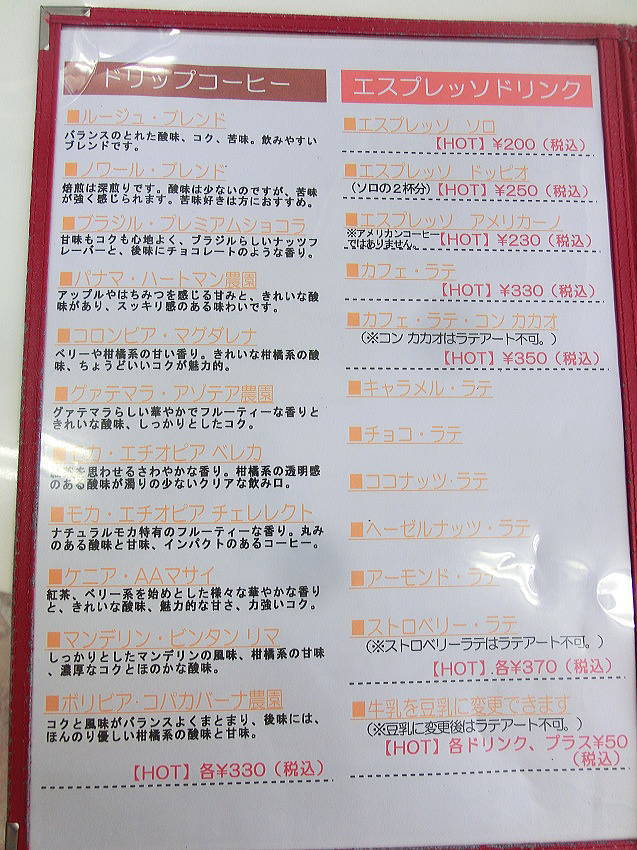 ドリップコーヒー
■ルージュ・ブレンド
バランスのとれた酸味、コク、苦味。飲みやすい
ブレンドです。
■ノワール・ブレンド
焙煎は深煎りです。酸味は少ないのですが、苦味
が強く感じられます。苦味好きは方におすすめ。
■ブラジル・プレミアムショコラ
甘味もコクも心地よく、ブラジルらしいナッツフ
レーバーと、後味にチョコレートのような香り。
■パナマ・ハートマン農園
アップルやはちみつを感じる甘みと、きれいな酸
味があり、スッキリ感のある味わいです。
■コロンビア・マグダレナ
ベリーや柑橘系の甘い香り。きれいな柑橘系の酸
味、ちょうどいいコクが魅力的。
■グァテマラ・アゾテア農園
グァテマラらしい華やかでフルーティーな香りと
きれいな酸味、しっかりとしたコク。
■モカ・エチオピア ベレカ
を思わせるさわやかな香り。柑橘系の透明感
のある酸味が濁りの少ないクリアな飲み口。
■モカ・エチオピア チェレレクト
ナチュラルモカ特有のフルーティーな香り。丸み
のある酸味と甘味、インパクトのあるコーヒー。
■ケニア・AAマサイ
紅茶、ベリー系を始めとした様々な華やかな香り
と、きれいな酸味、魅力的な甘さ、力強いコク。
■マンデリン・ビンタン リマ
しっかりとしたマンデリンの風味、柑橘系の甘味
、濃厚なコクとほのかな酸味。
■ボリビア・コパカバーナ農園
コクと風味がバランスよくまとまり、後味には、
ほんのり優しい柑橘系の酸味と甘味。
【HOT】各¥330（税込）
エスプレッソドリンク
■エスプレッソ ソロ
【HOT】¥200（税込）
■エスプレッソ ドッピオ
（ソロの２杯分）【HOT】¥250（税込）
■エスプレッソ アメリカーノ
※アメリカンコーヒー
ではありません。【HOT】¥230（税込）
■カフェ・ラテ
【HOT】¥330（税込）
■カフェ・ラテ・コン カカオ
（※コン カカオはラテアート不可。）
【HOT】¥350（税込）
■キャラメル・ラテ
■チョコ・ラテ
■ココナッツ・ラテ
■ヘーゼルナッツ・ラテ
■アーモンド・ラテ
■ストロベリー・ラテ
（※ストロベリーラテはラテアート不可。）
【HOT】各¥370（税込）
■牛乳を豆乳に変更できます
（※豆乳に変更後はラテアート不可。）
【HOT】各ドリンク、プラス¥50
（税込）